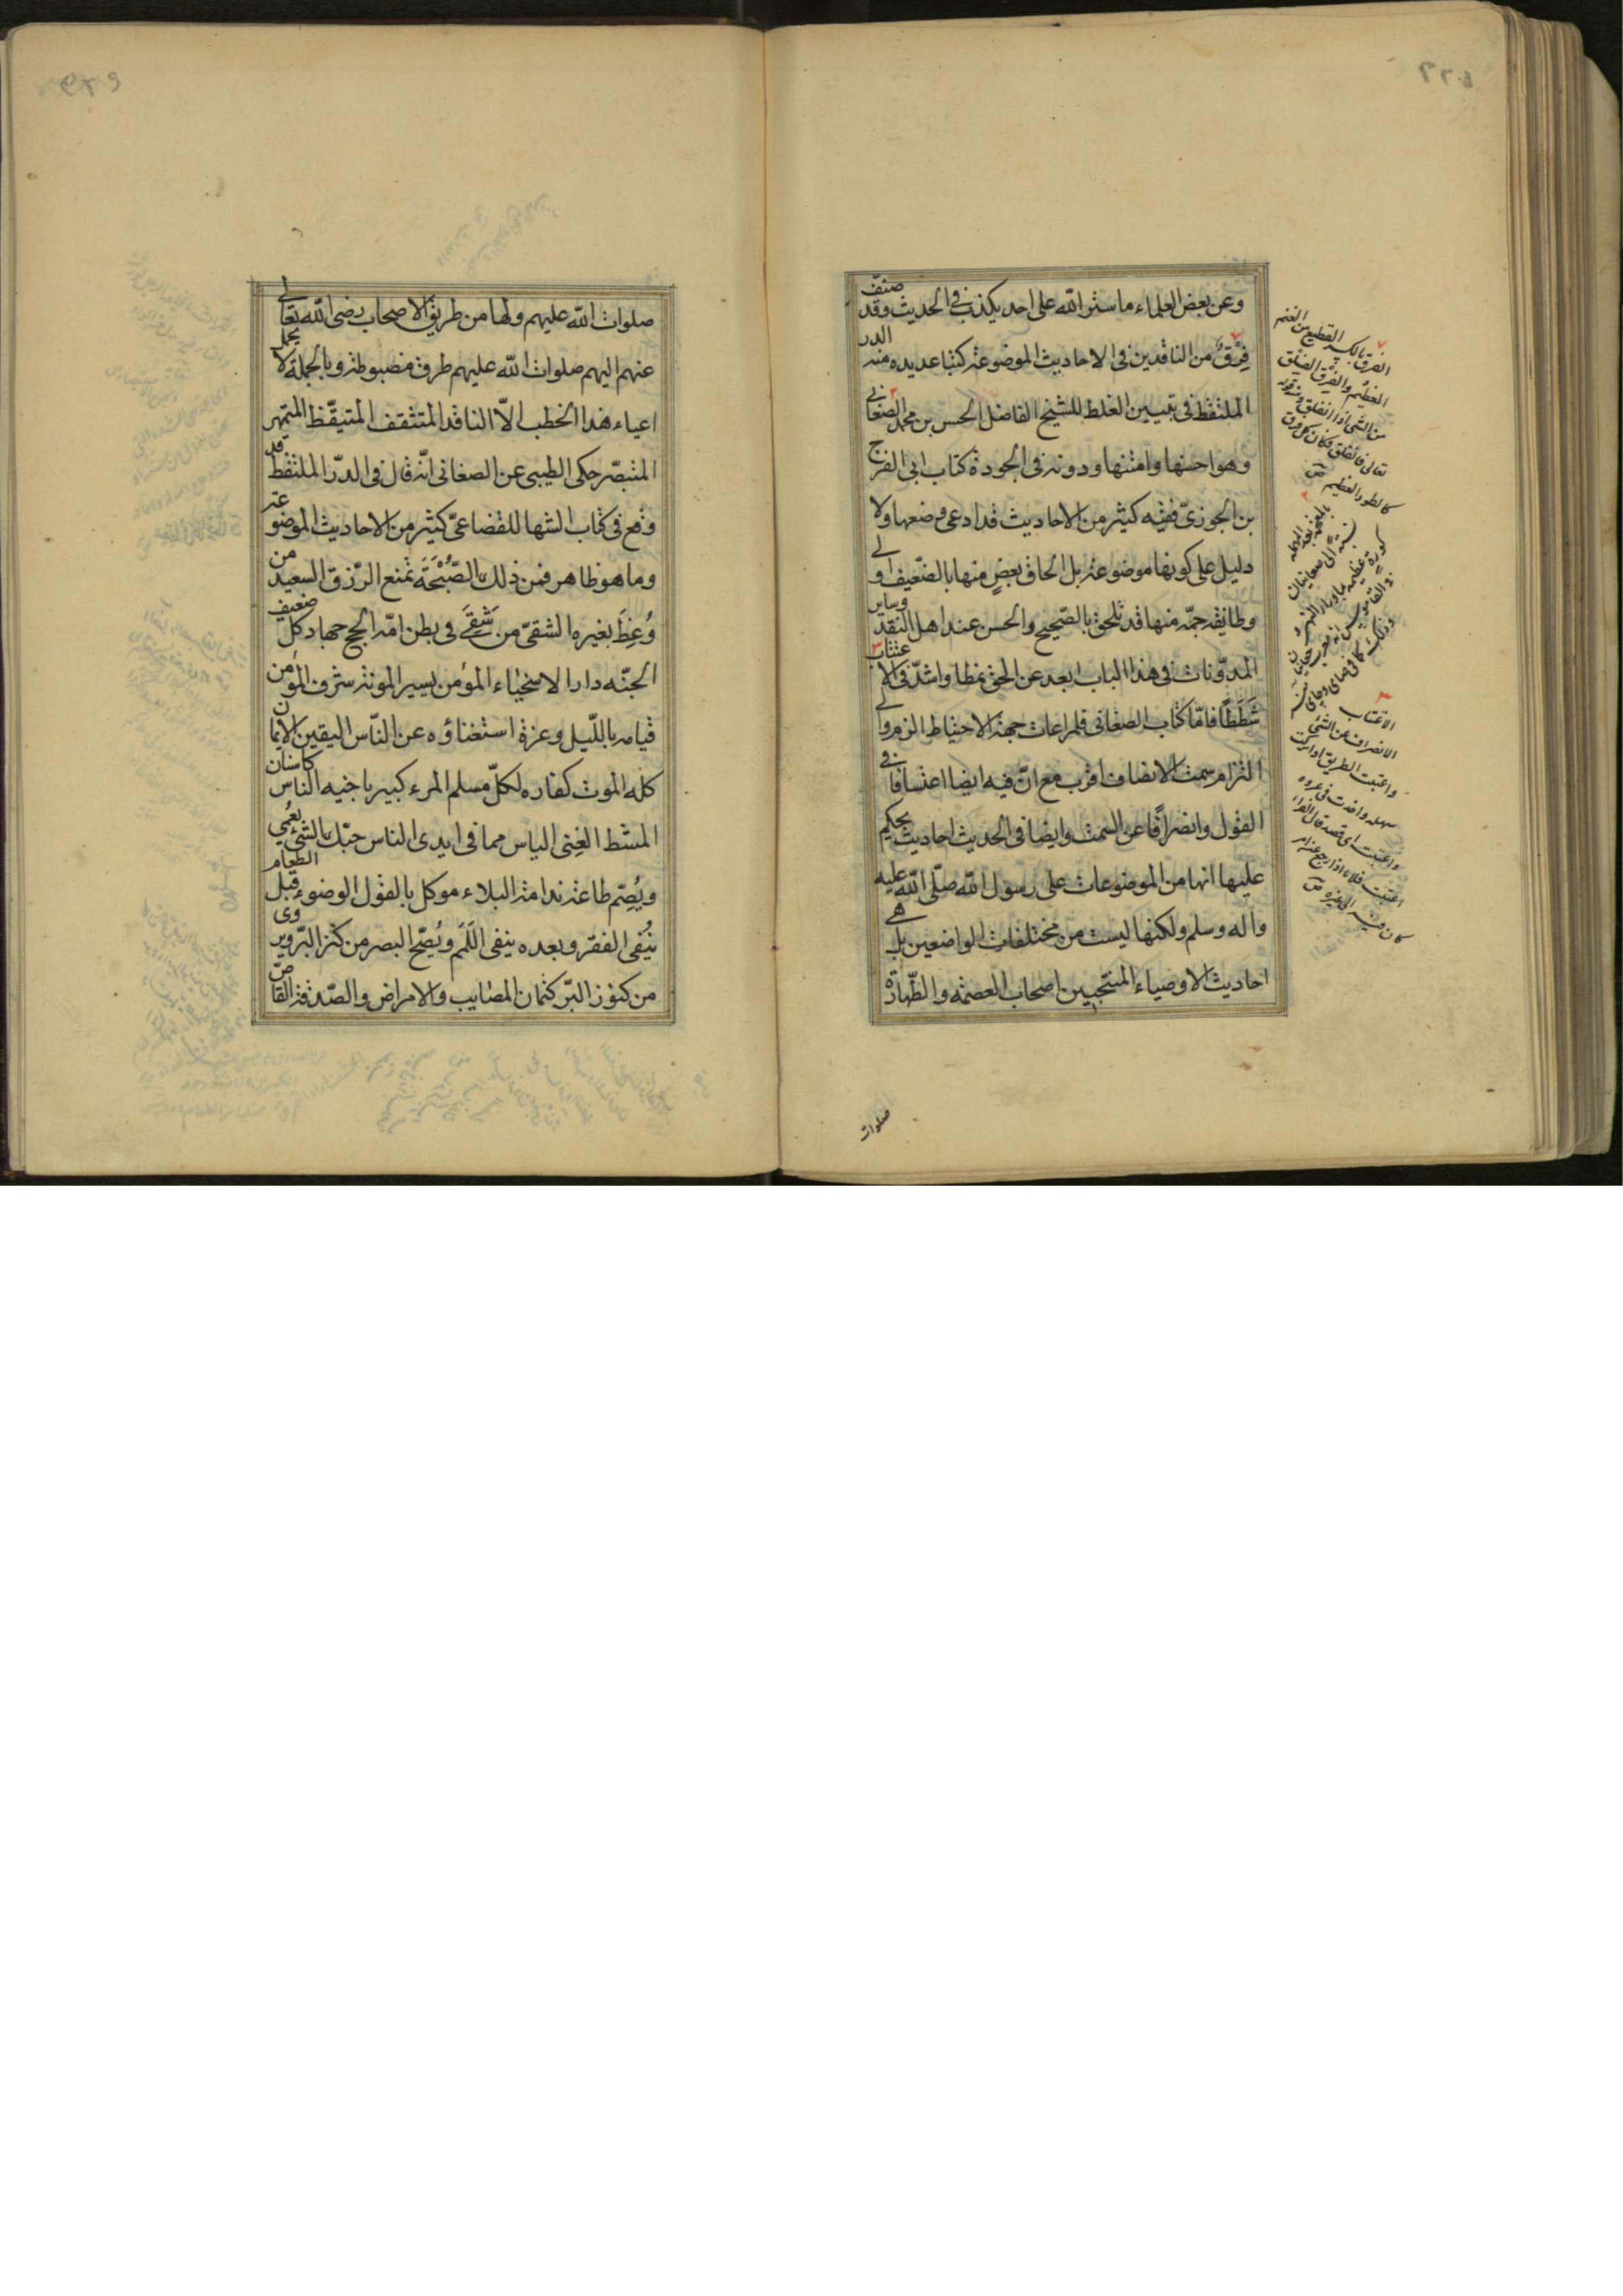 وعن بعض العلماء ما ستر الله على احد يكذب فى الحديث وقد صنف
فرق من الناقدين فى الاحاديث الموضوعة كتبا عديده منه الدر
الملتقط فى تبيين الغلط للشيخ الفاضل الحسن بن محمد الصغانى
وهو احسنها وامتنها ودونه فى الجودة كتاب ابى الفرج
بن الجوزىّ ففيه كثير من الاحاديث قد ادعى وضعها ولا
دليل على كونها موضوعة بل الحاق بعضٍ منها بالضّعيف اولى
وطايفه جمّه منها قد تلحق بالصّحيح والحسن عند اهل النقد وساير
المدوّنات فى هذا الباب ابعد عن الحق نمطا واشدّ فى الاعتتاب
شَطَطًا فامّا كتاب الصغانى فلمراعات جهة الاحتياط الزم والى
التزام سمت الانصاف اقرب مع انّ فيه ايضا اعتسافا فى
القول وانصرافًا عن السمت وايضا فى الحديث احاديث يحكم
عليها انها من الموضوعات على رسول الله صلّى الله عليه
واله وسلم ولكنها ليست من مختلقات الواضعين بل هى
احاديث الاوصياء المنتجبين اصحاب العصمة والطّهارة
الفرق بالكسر القطيع من الغنم
العظيم والفرق الفلق
من الشئ اذا انفلق ومنه قوله
تعالى فانفلق فكان كل فرق
كالطود العظيم ص
نسبة الى صغانيان
كورة عظيمه بماوراء النهر
الاعتتاب
الانصراف عن الشئ
واعتتبت الطريق اذا تركت
سهله واخذت فى وعره
واعتتب اى قصد قال الفراء
اعتتب فلان اذا رجع عن امر
كان فيه الى غيره ص
صلوات
صلوات الله عليهم ولها من طريق الاصحاب رضى الله تعالى
عنهم اليهم صلوات الله عليهم طرق مضبوطة وبالجملة لا يحمل
اعباء هذا الخطب الاّ الناقد المتثقف المتيقّظ المتمهر
المتبصّر حكى الطيبى عن الصغانى انّه قال فى الدرّ الملتقط قد
وقع فى كتاب الشهاب للقضاعىّ كثير من الاحاديث الموضوعة
وما هو ظاهر فمن ذلك الصُّبْحَة تمنع الرّزق السعيد من
وُعِظَ بغيره الشقىّ من شَقَى فى بطن امّه الحج جهاد كل ضعيف
الجنّه دار الاسخياء المؤمن يسير المونة شرف المؤمن
قيامه بالليل وعزة استغناؤه عن النّاس اليقين الايمان
كله الموت كفاره لكلّ مسلم المرء كبير باخيه الناس كاسنان
المشط الغِنى الياس مما فى ايدى الناس حبّك الشئ يعُمى
ويُصِّم طاعة ندامة البلاء موكل بالقول الوضوء قبل الطعام
ينُفى الفقر وبعده ينفى اللّمَم ويُصّح البصر من كنز البرّ ويروى
من كنوز البرّ كتمان المصايب والامراض والصّدقة القاصّ